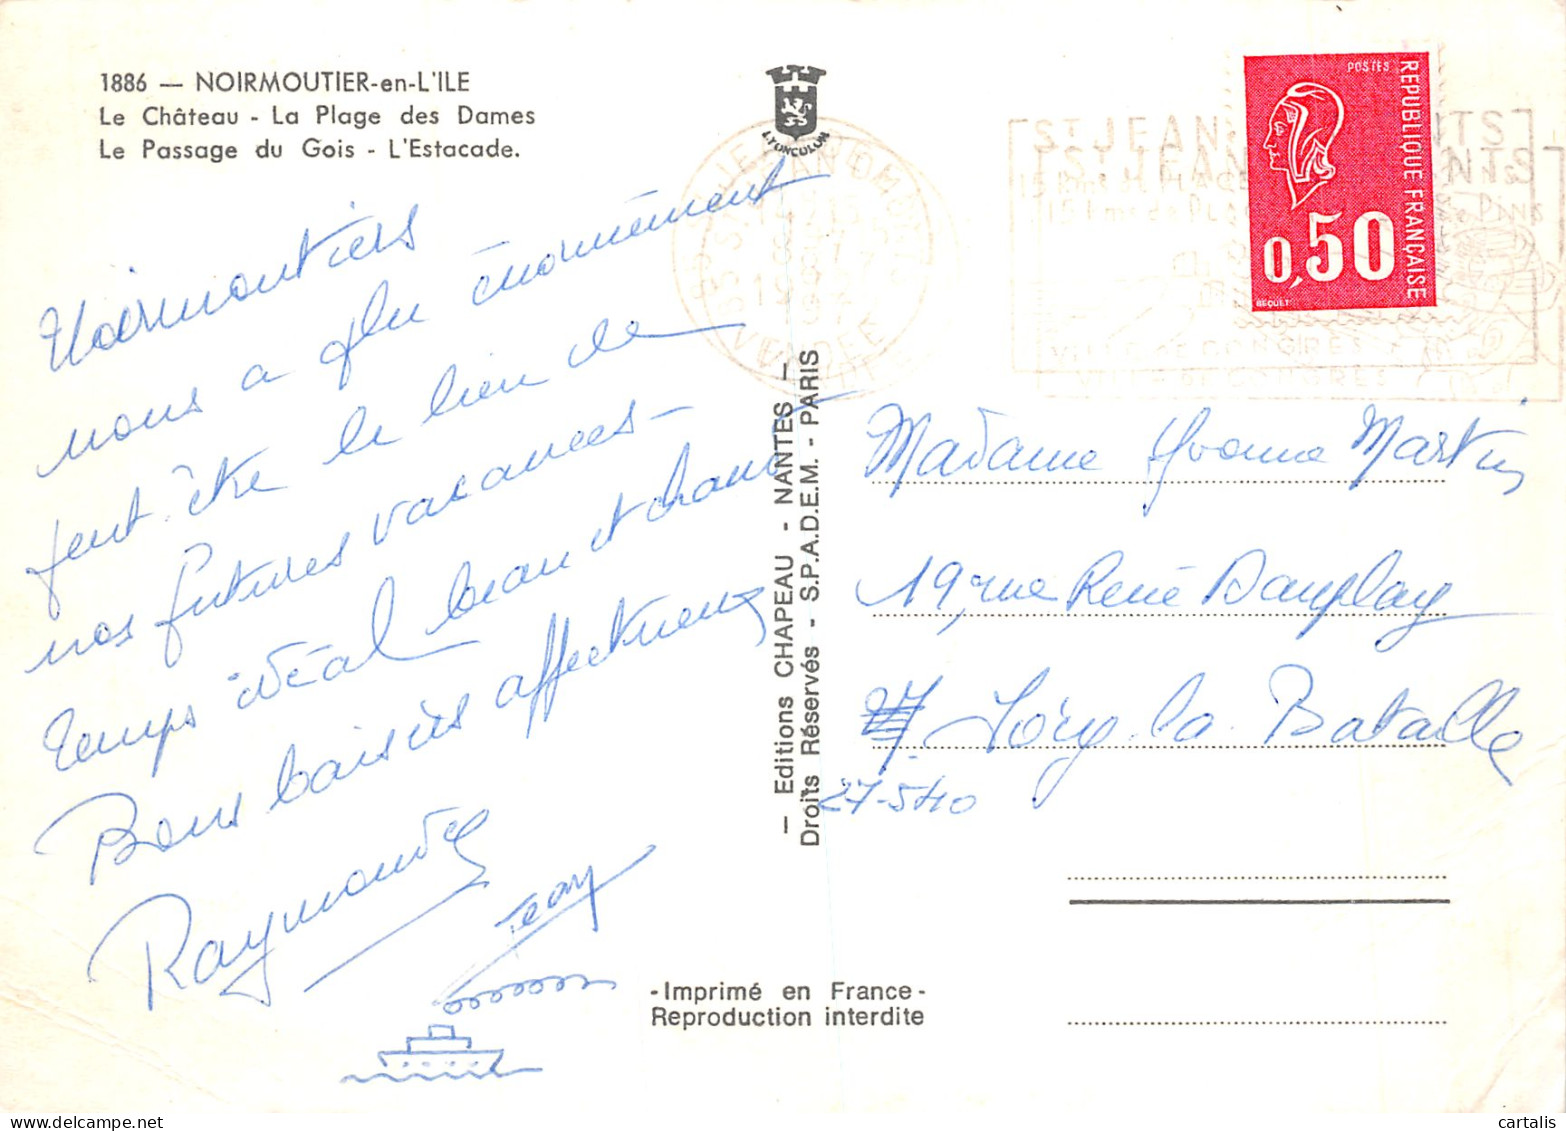 1886 — NOIRMOUTIER-en-L'ILE
Le Château - La Plage des Dames
Le Passage du Gois - L'Estacade.
LYONCOLOR
Noirmoutiers
nous a plu énormément
peut être le lieu de
nos futures vacances -
temps idéal beau et chaud
Bons baisers affectueux
Raymonde
Jean
— Editions CHAPEAU - NANTES —
Droits Réservés - S.P.A.D.E.M. - PARIS
-Imprimé en France-
Reproduction interdite
ST JEAN
VENDEE
POSTES
REPUBLIQUE FRANÇAISE
0,50
BEQUET
Madame Yvonne Martin
19, rue René Dauplay
Ivry-la-Bataille
27-540